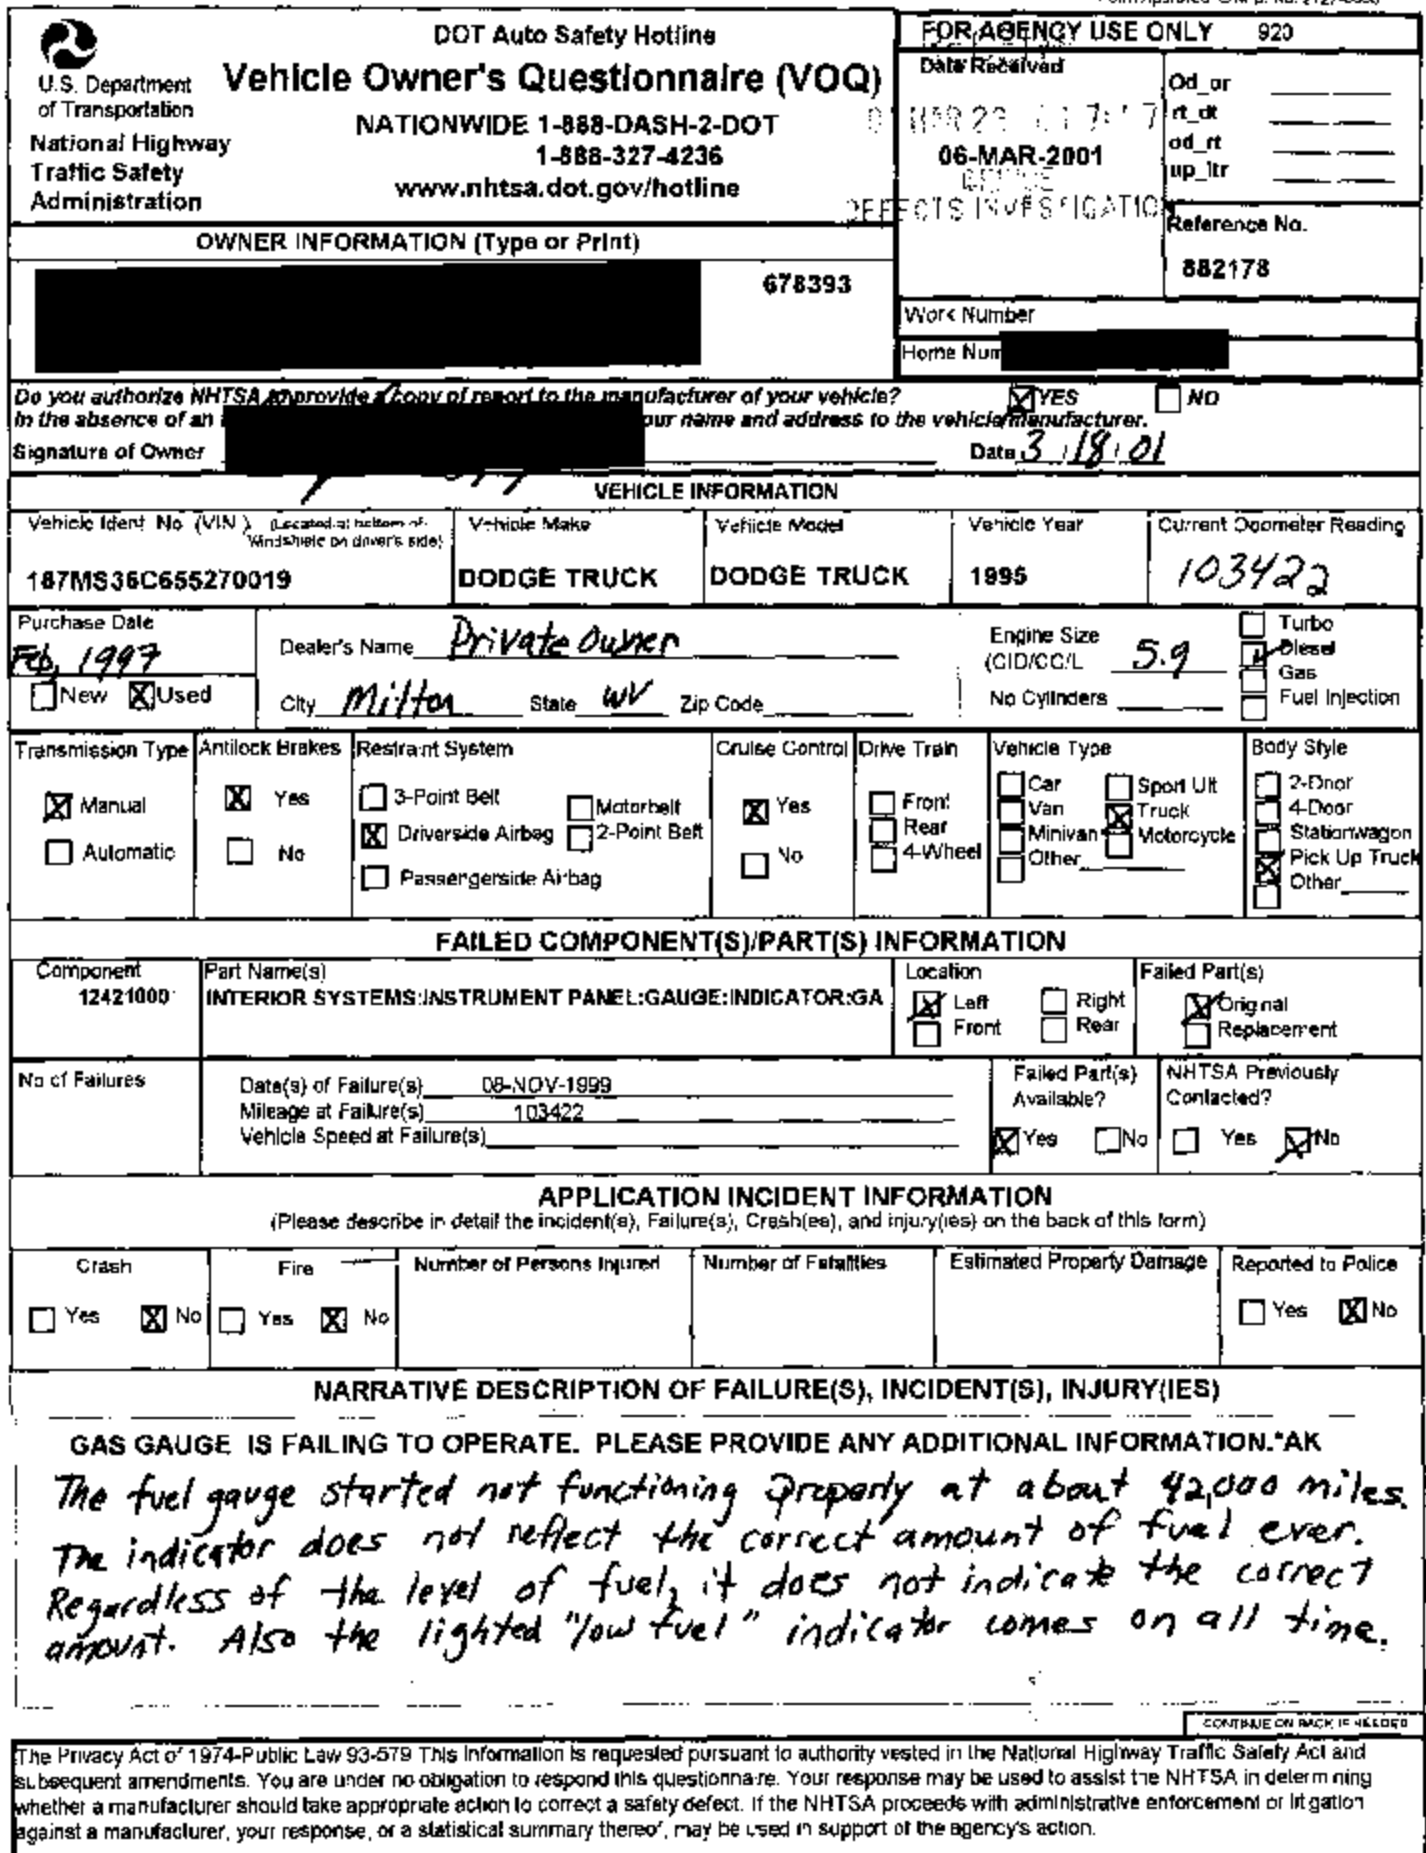 DOT Auto Safety Hotline
Vehicle Owner's Questionnaire (VOQ)
NATIONWIDE 1-888-DASH-2-DOT
1-888-327-4236
www.nhtsa.dot.gov/hotline
U.S. Department
of Transportation
National Highway
Traffic Safety
Administration
FOR AGENCY USE ONLY 920
Date Received
06-MAR-2001
DEFECTS INVESTIGATION
Od_or
rt_dt
od_rt
up_ltr
Reference No.
882178
OWNER INFORMATION (Type or Print)
678393
Work Number
Home Num
Do you authorize NHTSA to provide a copy of report to the manufacturer of your vehicle? YES NO
In the absence of an our name and address to the vehicle manufacturer.
Signature of Owner Date 3/18/01
VEHICLE INFORMATION
Vehicle Ident. No. (VIN) (Located at bottom of
Windshield on driver's side)
187MS36C655270019
Vehicle Make
DODGE TRUCK
Vehicle Model
DODGE TRUCK
Vehicle Year
1995
Current Odometer Reading
103422
Purchase Date
Feb, 1997
New Used
Dealer's Name Private Owner
City Milton State WV Zip Code
Engine Size
(CID/CC/L 5.9
No Cylinders
Turbo
Diesel
Gas
Fuel Injection
Transmission Type
Manual
Automatic
Antilock Brakes
Yes
No
Restraint System
3-Point Belt
Driverside Airbag
Passengerside Airbag
Motorbelt
2-Point Belt
Cruise Control
Yes
No
Drive Train
Front
Rear
4-Wheel
Vehicle Type
Car
Van
Minivan
Other
Sport Ult
Truck
Motorcycle
Body Style
2-Door
4-Door
Stationwagon
Pick Up Truck
Other
FAILED COMPONENT(S)/PART(S) INFORMATION
Component
12421000
Part Name(s)
INTERIOR SYSTEMS:INSTRUMENT PANEL:GAUGE:INDICATOR:GA
Location
Left Right
Front Rear
Failed Part(s)
Original
Replacement
No of Failures
Date(s) of Failure(s) 08-NOV-1999
Mileage at Failure(s) 103422
Vehicle Speed at Failure(s)
Failed Part(s)
Available?
Yes No
NHTSA Previously
Contacted?
Yes No
APPLICATION INCIDENT INFORMATION
(Please describe in detail the incident(s), Failure(s), Crash(es), and injury(ies) on the back of this form)
Crash
Yes No
Fire
Yes No
Number of Persons Injured
Number of Fatalities
Estimated Property Damage
Reported to Police
Yes No
NARRATIVE DESCRIPTION OF FAILURE(S), INCIDENT(S), INJURY(IES)
GAS GAUGE IS FAILING TO OPERATE. PLEASE PROVIDE ANY ADDITIONAL INFORMATION.*AK
The fuel gauge started not functioning properly at about 42,000 miles.
The indicator does not reflect the correct amount of fuel ever.
Regardless of the level of fuel, it does not indicate the correct
amount. Also the lighted "low fuel" indicator comes on all time.
CONTINUE ON BACK IF NEEDED
The Privacy Act of 1974-Public Law 93-579 This information is requested pursuant to authority vested in the National Highway Traffic Safety Act and
subsequent amendments. You are under no obligation to respond this questionnaire. Your response may be used to assist the NHTSA in determining
whether a manufacturer should take appropriate action to correct a safety defect. If the NHTSA proceeds with administrative enforcement or litigation
against a manufacturer, your response, or a statistical summary thereof, may be used in support of the agency's action.